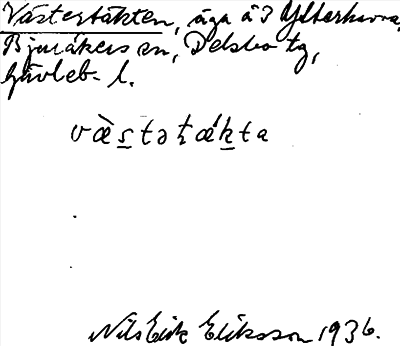 Västertäkten, äga å 3 Ytterhavra,
Bjuråkers sn, Delsbo tg,
Gävleb. l.
væ̀s̲tət̲ǽk̲ta
Nils Erik Eriksson 1936.